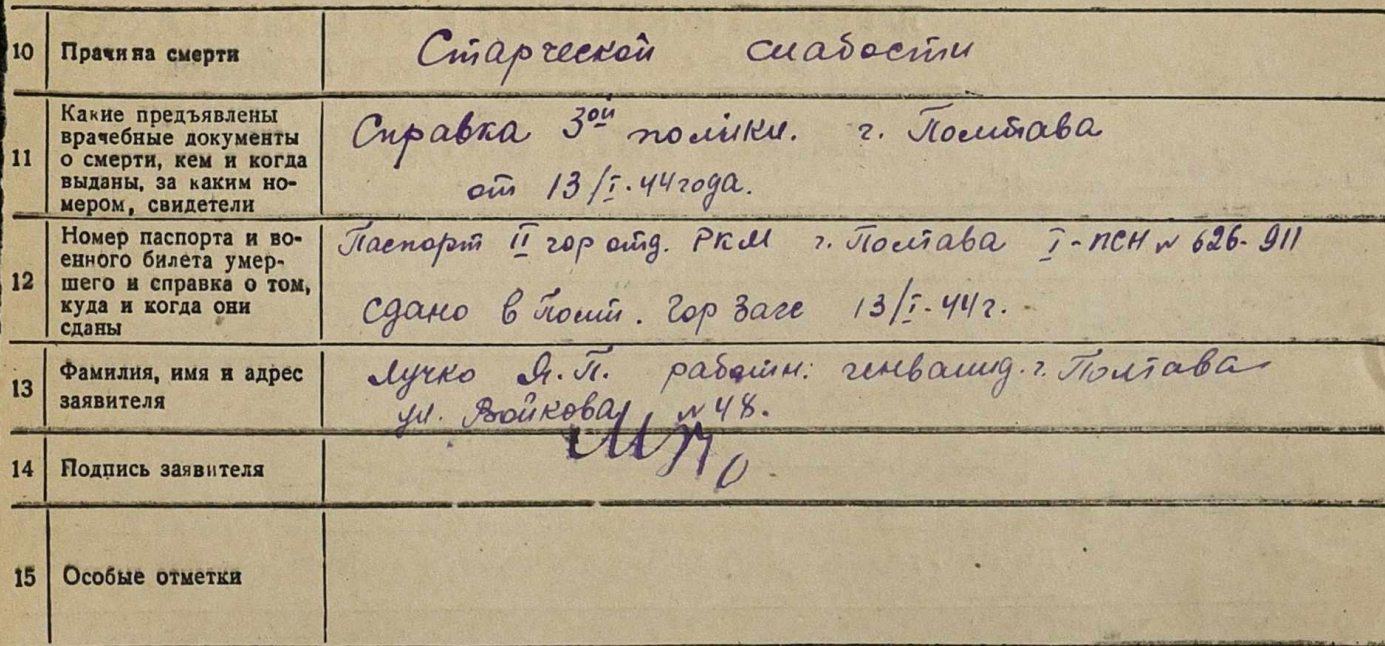 10 Прачина смерти Старческой слабости
11 Какие предъявлены
врачебные документы
о смерти, кем и когда
выданы, за каким но-
мером, свидетели
Справка 3ой полики. г. Полтава
от 13/I-44 года.
12 Номер паспорта и во-
енного билета умер-
шего и справка о том,
куда и когда они
сданы
Паспорт II гор отд. РКМ г. Полтава I-ПСН № 626-911
сдано в Полт. Гор Загс 13/I-44 г.
13 Фамилия, имя и адрес
заявителя
Лучко Я. П. работн: г. Полтава
ул. Войкова № 48.
14 Подпись заявителя
15 Особые отметки